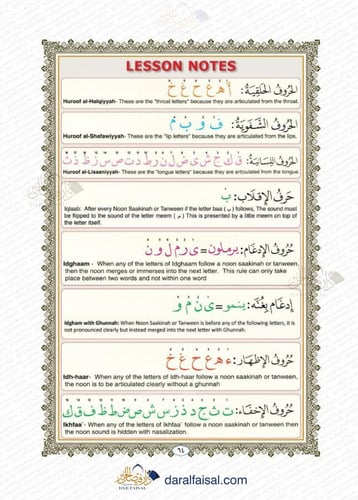 LESSON NOTES
الحُرُوفُ الحَلْقِيَّةُ: أ هـ ع ح غ خ
Huroof al-Halqiyyah- These are the "throat letters" because they are articulated from the throat.
الحُرُوفُ الشَّفَوِيَّةُ: ف و ب م
Huroof al-Shafawiyyah- These are the "lip letters" because they are articulated from the lips.
الحُرُوفُ اللِّسَانِيَّةُ: ق ك ج ش ي ض ل ن ر ط د ت ص س ز ظ ذ ث
Huroof al-Lisaaniyyah- These are the "tongue letters" because they are articulated from the tongue.
حَرْفُ الإِقْلَابِ: ب
Iqlaab: After every Noon Saakinah or Tanween if the letter baa ( ب ) follows, The sound must
be flipped to the sound of the letter meem ( م ) This is presented by a little meem on top of
the letter itself.
حُرُوفُ الإِدْغَامِ: يرملون = ى ر م ل و ن
Idghaam - When any of the letters of Idghaam follow a noon saakinah or tanween,
then the noon merges or immerses into the next letter. This rule can only take
place between two words and not within one word
إِدْغَام بِغُنَّه: ينمو = ى ن م و
Idgham with Ghunnah: When Noon Saakinah or Tanween is before any of the following letters, it is
not pronounced clearly but instead merged into the next letter with Ghunnah.
حُرُوفُ الإِظْهَارِ: ء هـ ع ح غ خ
Idh-haar- When any of the letters of Idh-haar follow a noon saakinah or tanween,
the noon is to be articulated clearly without a ghunnah
حُرُوفُ الإِخْفَاءِ: ت ث ج د ذ ز س ش ص ض ط ظ ف ق ك
Ikhfaa`- When any of the letters of Ikhfaa` follow a noon saakinah or tanween then
the noon sound is hidden with nasalization.
٦٤
DAR ALFAISAL
daralfaisal.com